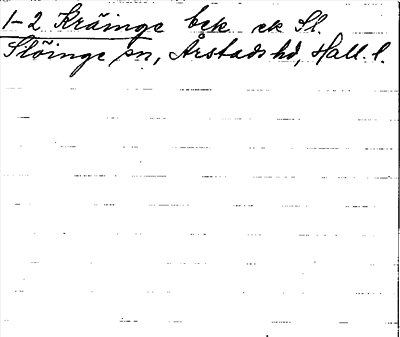 1-2 Kräinge bek ek Sl.
Slöinge sn, Årstads hd, Hall. l.